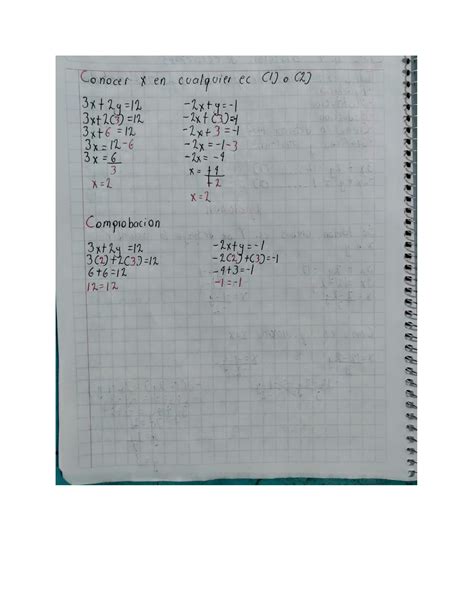 Conocer x en cualquier ec (1) o (2)
3x+2y=12
3x+2(3)=12
3x+6=12
3x=12-6
3x=6
3
x=2
-2x+y=-1
-2x+(3)=-1
-2x+3=-1
-2x=-1-3
-2x=-4
x=-4
-2
x=2
Comprobacion
3x+2y=12
3(2)+2(3)=12
6+6=12
12=12
-2x+y=-1
-2(2)+(3)=-1
-4+3=-1
-1=-1